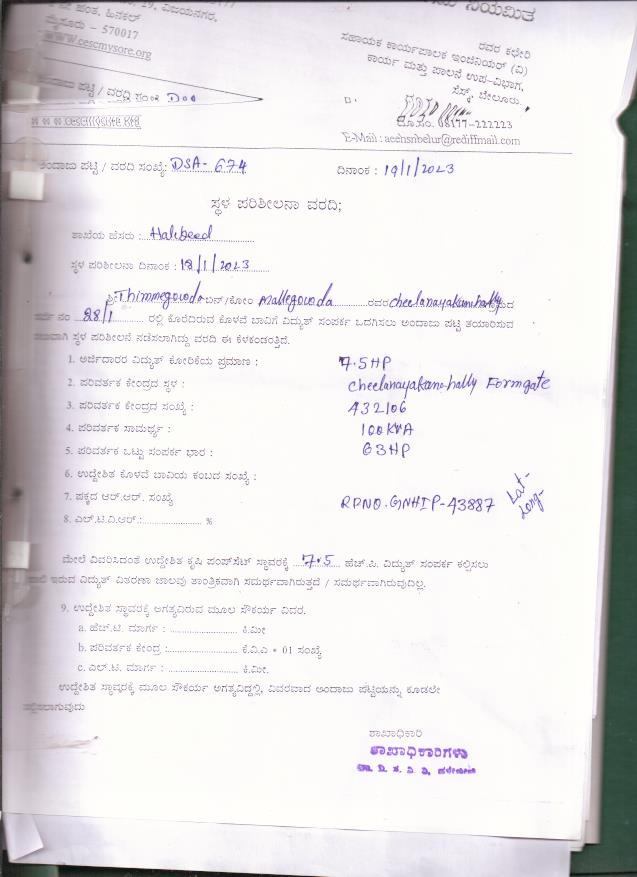 ನಿಯಮಿತ
ವಿಜಯನಗರ,
ಹಿನಕಲ್
ಮೈಸೂರು – 570017
www.cescmysore.org
ರವರ ಕಛೇರಿ
ಸಹಾಯಕ ಕಾರ್ಯಪಾಲಕ ಇಂಜಿನಿಯರ್ (ವಿ)
ಕಾರ್ಯ ಮತ್ತು ಪಾಲನೆ ಉಪ-ವಿಭಾಗ,
ಸೆಸ್ಕ್, ಬೇಲೂರು.
08177-222223
E-Mail : aeehsnbelur@rediffmail.com
ಅಂದಾಜು ಪಟ್ಟಿ / ವರದಿ ಸಂಖೆ
ಅಂದಾಜು ಪಟ್ಟಿ / ವರದಿ ಸಂಖ್ಯೆ: DSA- 674 ದಿನಾಂಕ : 19/1/2023
ಸ್ಥಳ ಪರಿಶೀಲನಾ ವರದಿ;
ಶಾಖೆಯ ಹೆಸರು : Halebeed
ಸ್ಥಳ ಪರಿಶೀಲನಾ ದಿನಾಂಕ : 18/1/2023
ಶ್ರೀ Thimmegowda ಬಿನ್/ಕೋಂ Mallegowda ರವರ cheelanayakanahally
ಸರ್ವೆ ನಂ 88/1 ರಲ್ಲಿ ಕೊರೆದಿರುವ ಕೊಳವೆ ಬಾವಿಗೆ ವಿದ್ಯುತ್ ಸಂಪರ್ಕ ಒದಗಿಸಲು ಅಂದಾಜು ಪಟ್ಟಿ ತಯಾರಿಸುವ
ಸ್ಥಳ ಪರಿಶೀಲನೆ ನಡೆಸಲಾಗಿದ್ದು ವರದಿ ಈ ಕೆಳಕಂಡಂತ್ತಿದೆ.
1. ಅರ್ಜಿದಾರರ ವಿದ್ಯುತ್ ಕೋರಿಕೆಯ ಪ್ರಮಾಣ : 7.5HP
2. ಪರಿವರ್ತಕ ಕೇಂದ್ರದ ಸ್ಥಳ : cheelanayakanahally Formgate
3. ಪರಿವರ್ತಕ ಕೇಂದ್ರದ ಸಂಖ್ಯೆ : 432106
4. ಪರಿವರ್ತಕ ಸಾಮರ್ಥ್ಯ : 100KVA
5. ಪರಿವರ್ತಕ ಒಟ್ಟು ಸಂಪರ್ಕ ಭಾರ : 63HP
6. ಉದ್ದೇಶಿತ ಕೊಳವೆ ಬಾವಿಯ ಕಂಬದ ಸಂಖ್ಯೆ :
7. ಪಕ್ಕದ ಆರ್.ಆರ್. ಸಂಖ್ಯೆ RRNO. GNHIP-43887
Lat-
Long-
8. ಎಲ್.ಟಿ.ವಿ.ಆರ್.:............ %
ಮೇಲೆ ವಿವರಿಸಿದಂತೆ ಉದ್ದೇಶಿತ ಕೃಷಿ ಪಂಪ್‌ಸೆಟ್ ಸ್ಥಾವರಕ್ಕೆ 7.5 ಹೆಚ್.ಪಿ. ವಿದ್ಯುತ್ ಸಂಪರ್ಕ ಕಲ್ಪಿಸಲು
ಇರುವ ವಿದ್ಯುತ್ ವಿತರಣಾ ಜಾಲವು ತಾಂತ್ರಿಕವಾಗಿ ಸಮರ್ಥವಾಗಿರುತ್ತದೆ / ಸಮರ್ಥವಾಗಿರುವುದಿಲ್ಲ.
9. ಉದ್ದೇಶಿತ ಸ್ಥಾವರಕ್ಕೆ ಅಗತ್ಯವಿರುವ ಮೂಲ ಸೌಕರ್ಯ ವಿವರ.
a. ಹೆಚ್.ಟಿ. ಮಾರ್ಗ : ............ ಕಿ.ಮೀ
b. ಪರಿವರ್ತಕ ಕೇಂದ್ರ :............ ಕೆ.ವಿ.ಎ * 01 ಸಂಖ್ಯೆ
c. ಎಲ್.ಟಿ. ಮಾರ್ಗ : ............ ಕಿ.ಮೀ.
ಉದ್ದೇಶಿತ ಸ್ಥಾವರಕ್ಕೆ ಮೂಲ ಸೌಕರ್ಯ ಅಗತ್ಯವಿದ್ದಲ್ಲಿ, ವಿವರವಾದ ಅಂದಾಜು ಪಟ್ಟಿಯನ್ನು ಕೂಡಲೇ
ಸಲ್ಲಿಸಲಾಗುವುದು
ಶಾಖಾಧಿಕಾರಿ
ಶಾಖಾಧಿಕಾರಿಗಳು